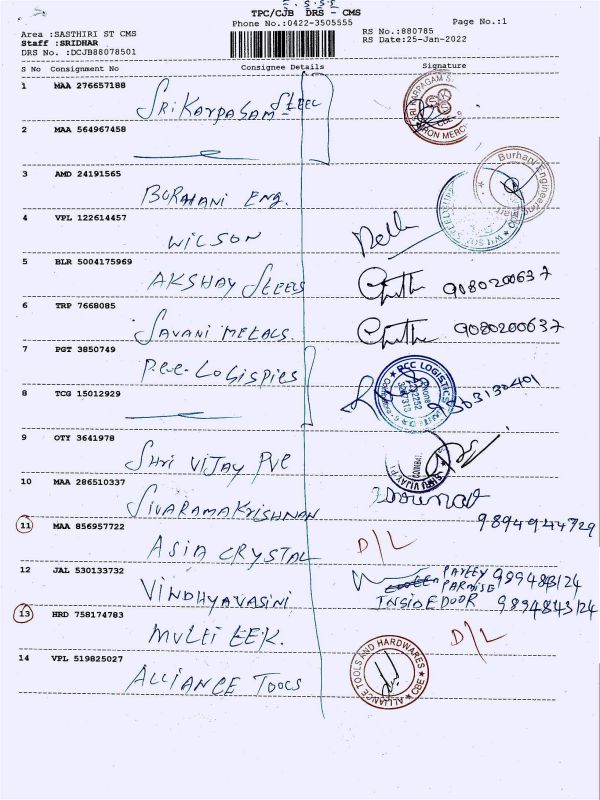 TPC/CJB DRS - CMS
Phone No.:0422-3505555
Page No.:1
Area :SASTHIRI ST CMS
Staff :SRIDHAR
DRS No. :DCJB88078501
RS No.:880785
RS Date:25-Jan-2022
S No Consignment No Consignee Details Signature
1 MAA 276657188
SRi Karpagam Steel
2 MAA 564967458
3 AMD 24191565
BURHANI ENG.
4 VPL 122614457
WILSON
5 BLR 5004175969
AKSHAY STEELS 9080200637
6 TRP 7668085
SAVANI METALS. 9080200637
7 PGT 3850749
P.C.C. LOGISTICS
PCC LOGISTICS
8 TCG 15012929
9 OTY 3641978
SHRI VIJAY PVC
10 MAA 286510337
SIVARAMAKRISHNAN
9894944729
11 MAA 856957722
ASIA CRYSTAL D/L
12 JAL 530133732
VINDHYAVASINI
INSIDE DOOR
13 HRD 758174783
MULTI TEK. D/L
14 VPL 519825027
ALLIANCE TOOLS
ALLIANCE TOOLS AND HARDWARES
CBE